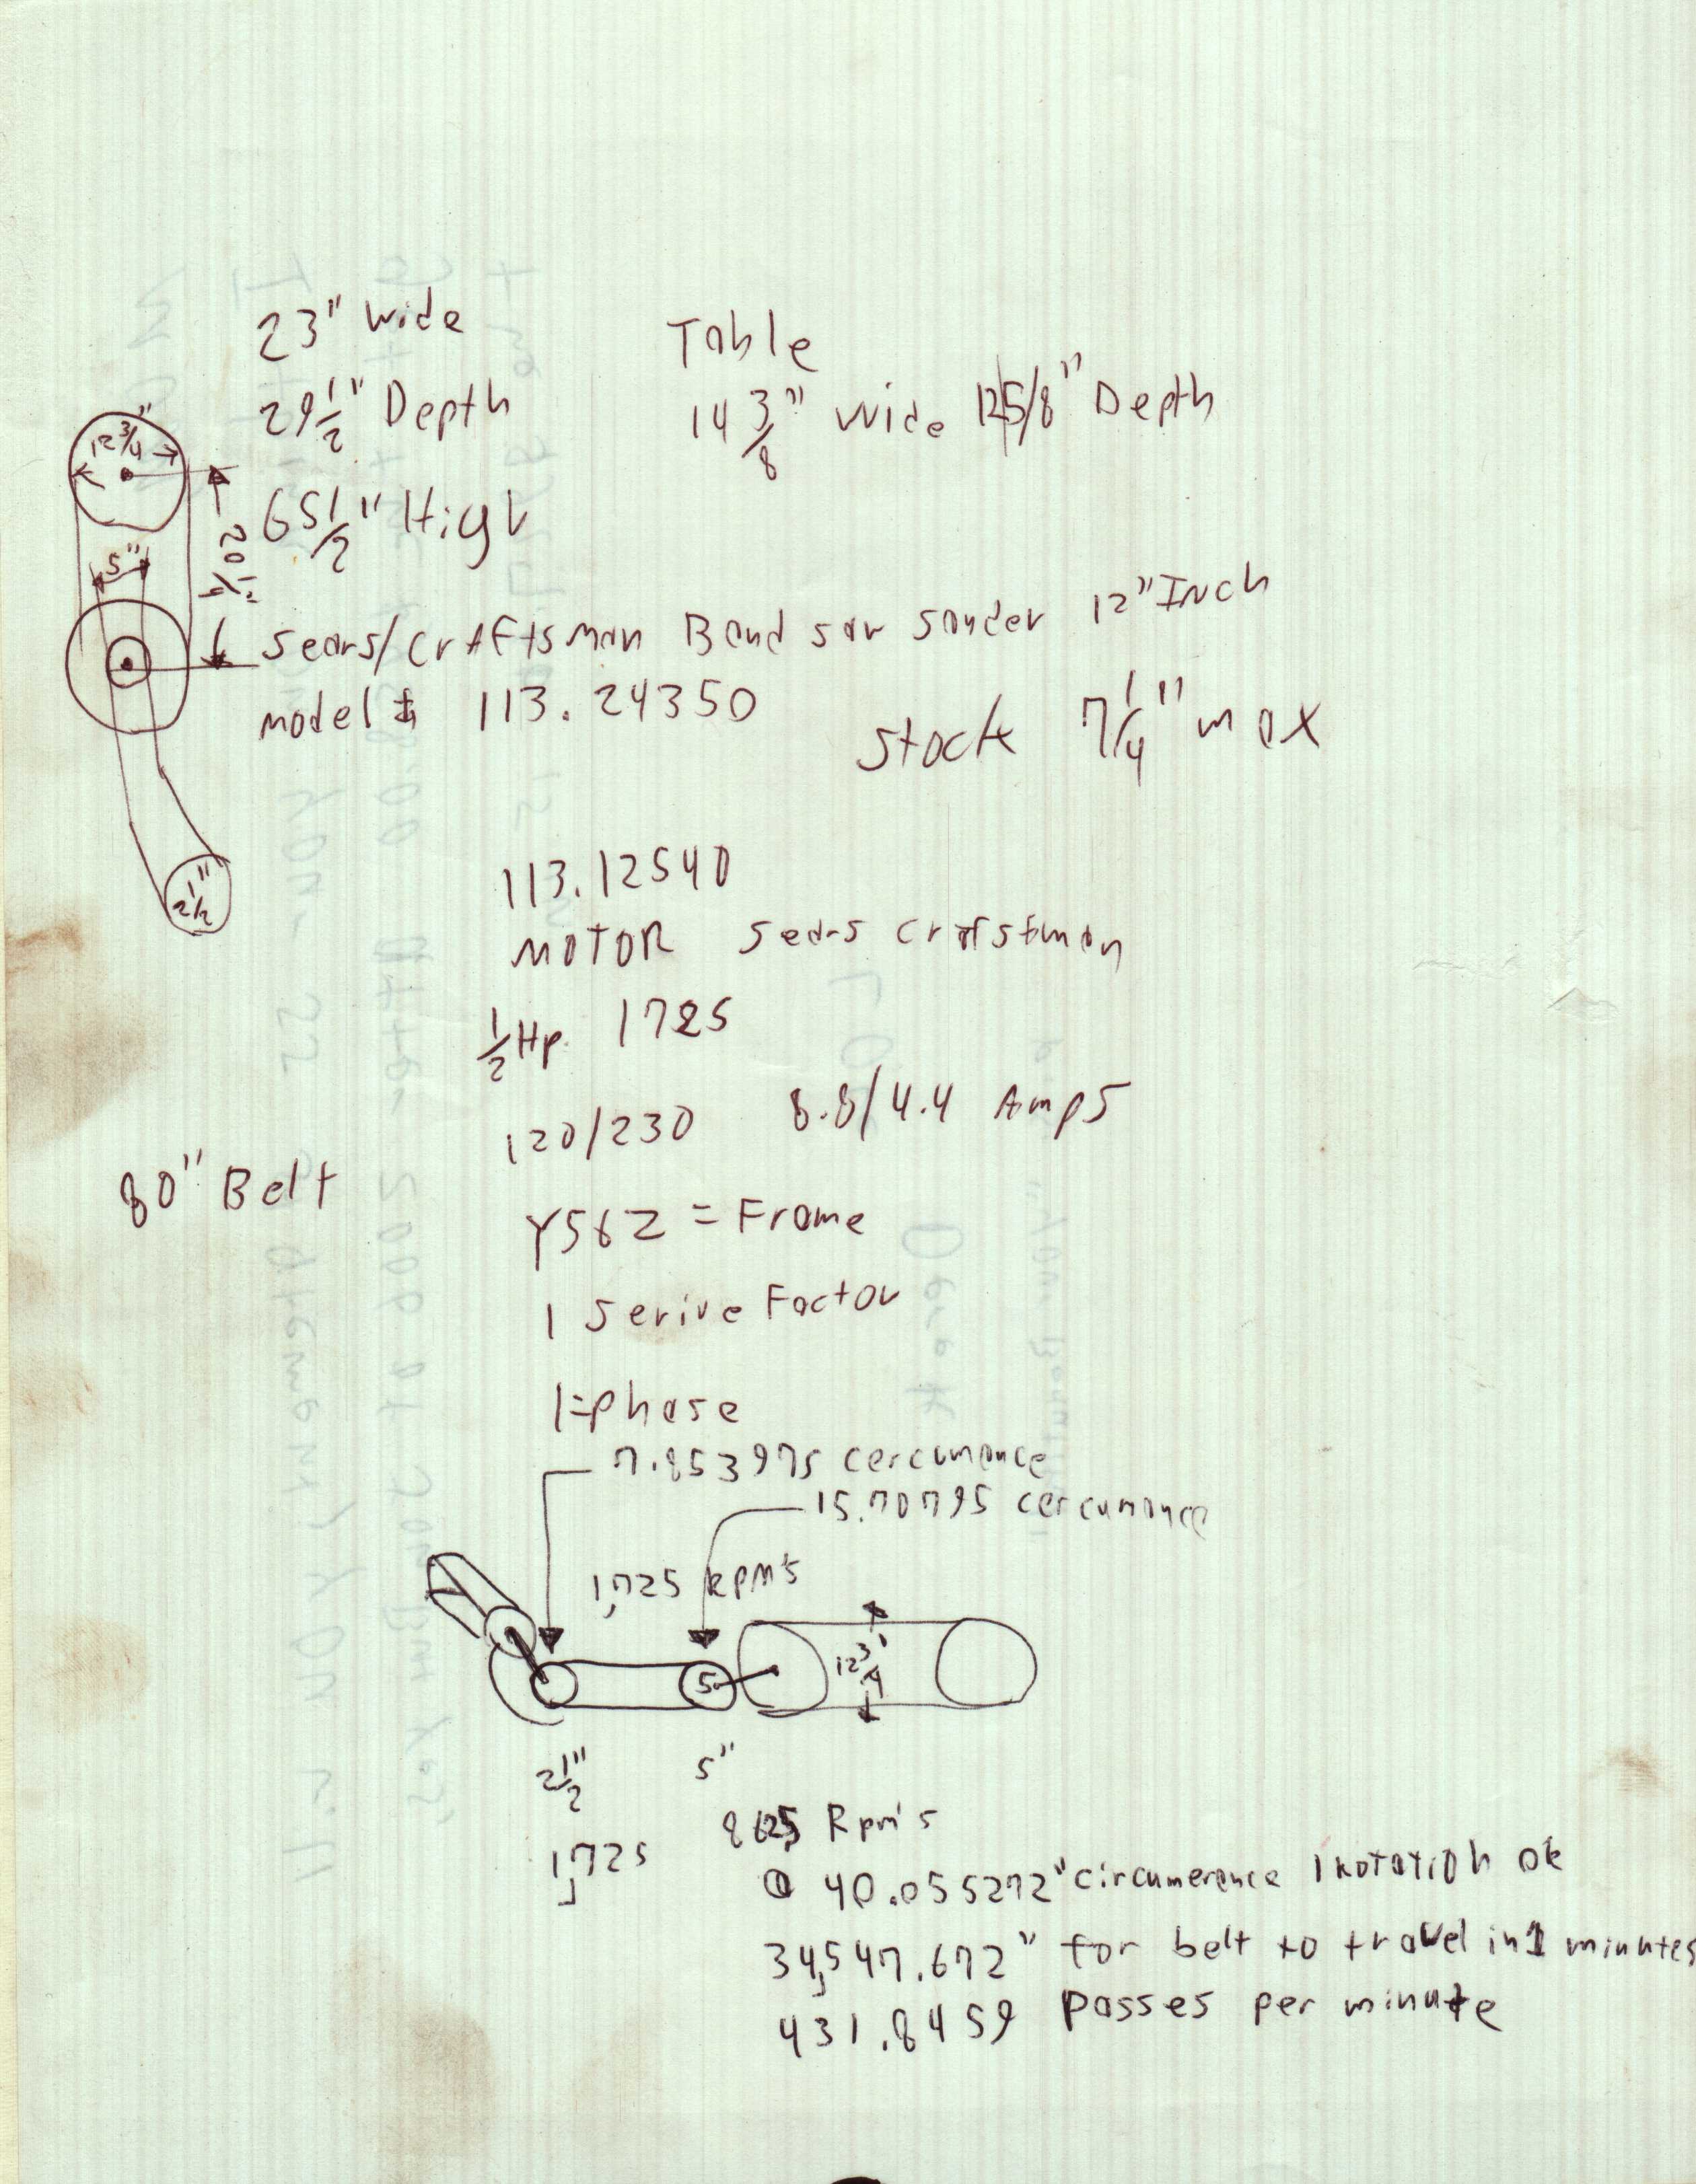 23" wide
29 1/2" Depth
65 1/2" High
Table
14 3/8" wide 12 5/8" Depth
12 3/4"
5"
20 1/4
Sears/Craftsman Band saw sander 12" Inch
model # 113.24350
Stock 7 1/4" max
2 1/2"
113.12540
MOTOR Sears Craftsman
1/2 Hp. 1725
120/230 8.8/4.4 Amps
80" Belt
Y56Z = Frame
1 Serive Factor
1-phase
7.853975 cercumance
15.70795 cercumance
1,725 Rpm's
5
12 3/4"
2 1/2" 5"
1,725 862.5 Rpm's
@ 40.055272" circumerence 1 Rotation ok
34,547.672" for belt to travel in 1 minutes
431.8459 Passes per minute